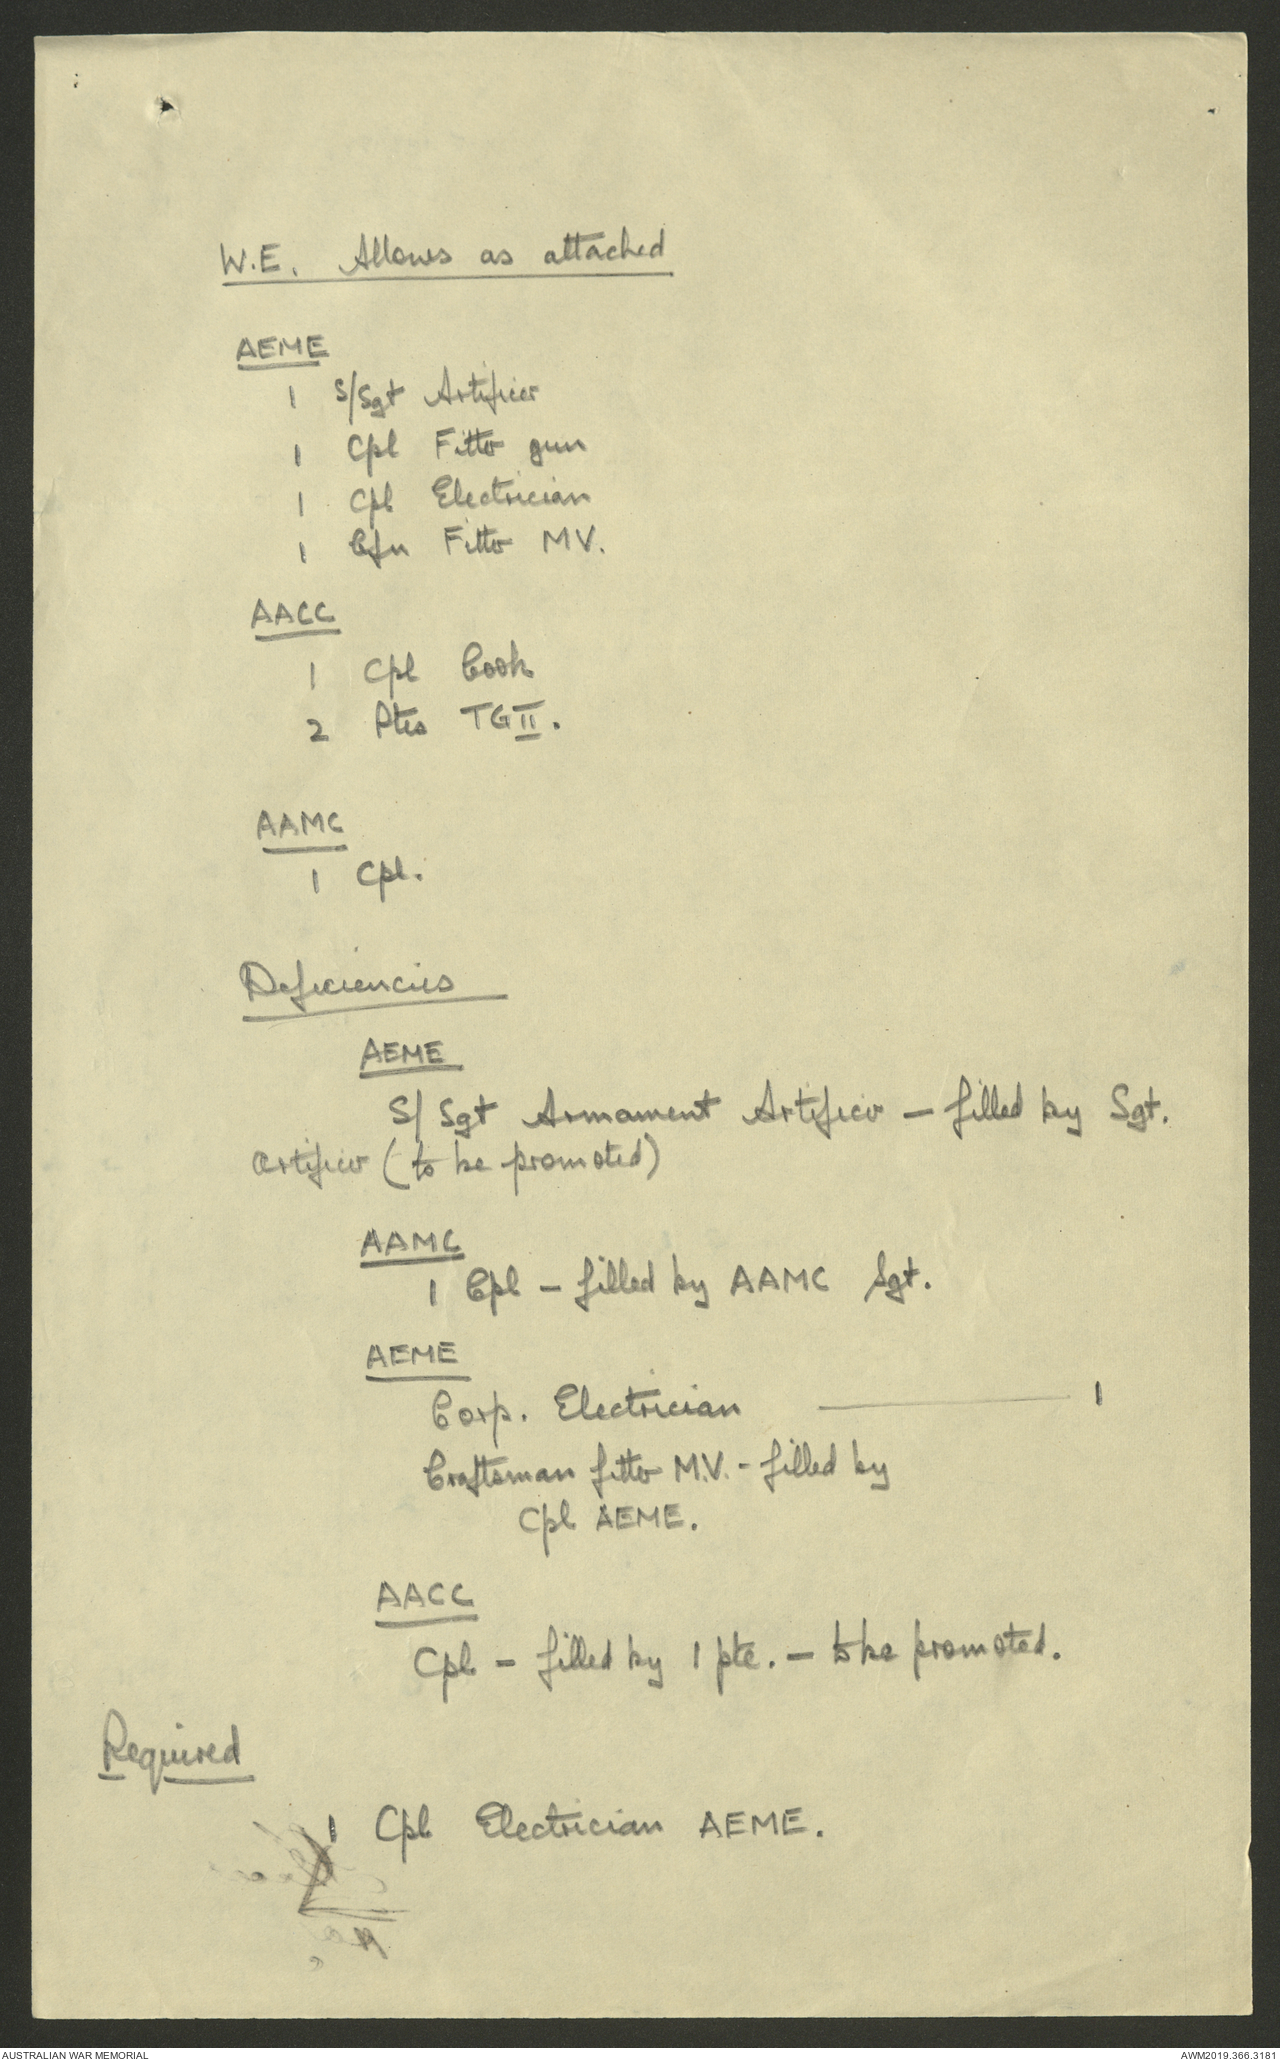 W.E. Allows as attached
AEME
1 S/Sgt Artificer
1 Cpl Fitter gun
1 Cpl Electrician
1 Cfn Fitter MV.
AACC
1 Cpl Cook
2 Ptes TG II.
AAMC
1 Cpl.
Deficiencies
AEME
S/Sgt Armament Artificer - filled by Sgt.
artificer (to be promoted)
AAMC
1 Cpl - filled by AAMC Sgt.
AEME
Corp. Electrician ——— 1
Craftsman fitter M.V. - filled by
Cpl AEME.
AACC
Cpl - filled by 1 pte. - to be promoted.
Required
1 Cpl Electrician AEME.
AUSTRALIAN WAR MEMORIAL
AWM2019.366.3181